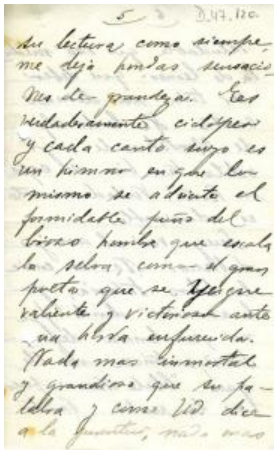 5
D.47.120.
su lectura como siempre,
me dejó hondas sensacio
nes de grandeza. Es
verdaderamente ciclópeo
y cada canto suyo es
un himno en que lo
mismo se advierte el
formidable puño del
hombre que escala
la selva como el gran
poeta que se yergue
valiente y victorioso ante
una horda enfurecida.
Nada mas inmortal
y grandioso que su pa-
labra y como Ud. dice
a la juventud, nada mas